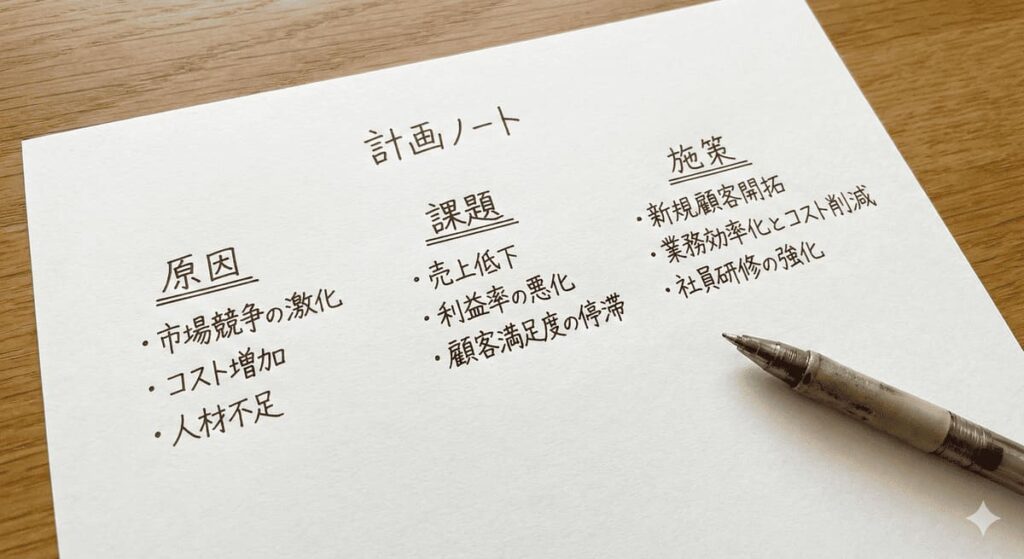 計画ノート
原因
・市場競争の激化
・コスト増加
・人材不足
課題
・売上低下
・利益率の悪化
・顧客満足度の停滞
施策
・新規顧客開拓
・業務効率化とコスト削減
・社員研修の強化